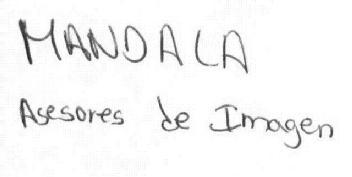 MANDALA
Asesores de Imagen